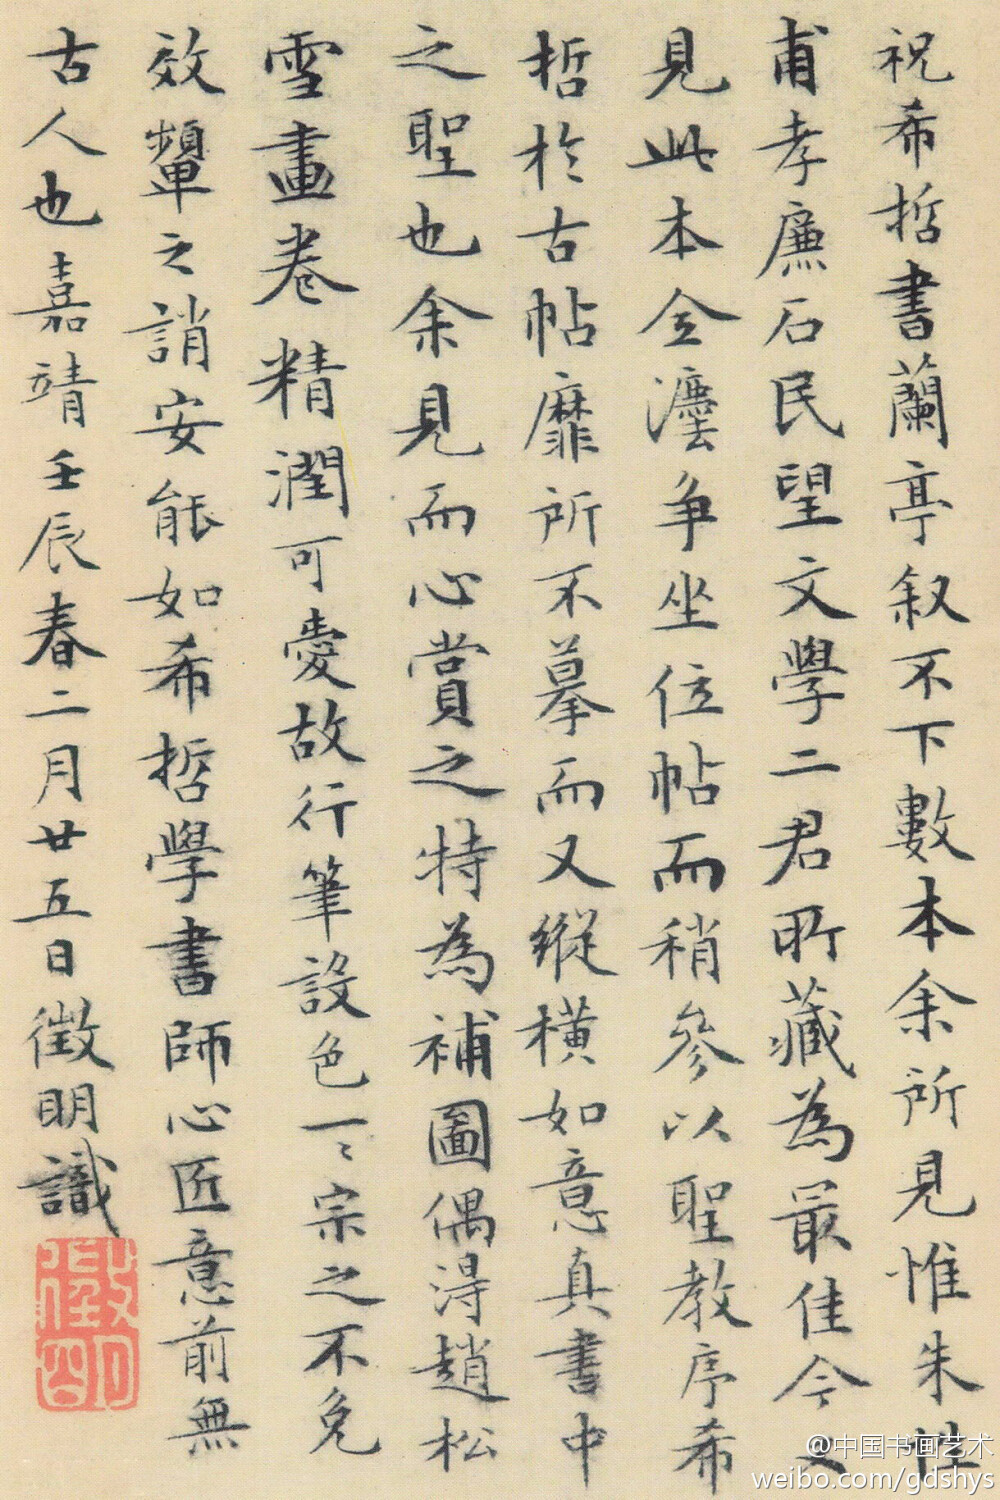 祝希哲書蘭亭叙不下數本余所見惟朱性
甫孝廉石民望文學二君所藏為最佳今又
見此本全灋争坐位帖而稍參以聖教序希
哲於古帖靡所不摹而又縱横如意真書中
之聖也余見而心賞之特為補圖偶淂趙松
雪畫卷精潤可愛故行筆設色一〻宗之不免
效顰之誚安能如希哲學書師心匠意前無
古人也嘉靖壬辰春二月廿五日徵明識
徵明
@中国书画艺术
weibo.com/gdshys